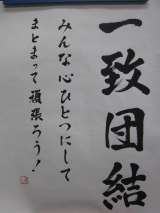 一致団結
みんな心ひとつにして
まとまって頑張ろう!